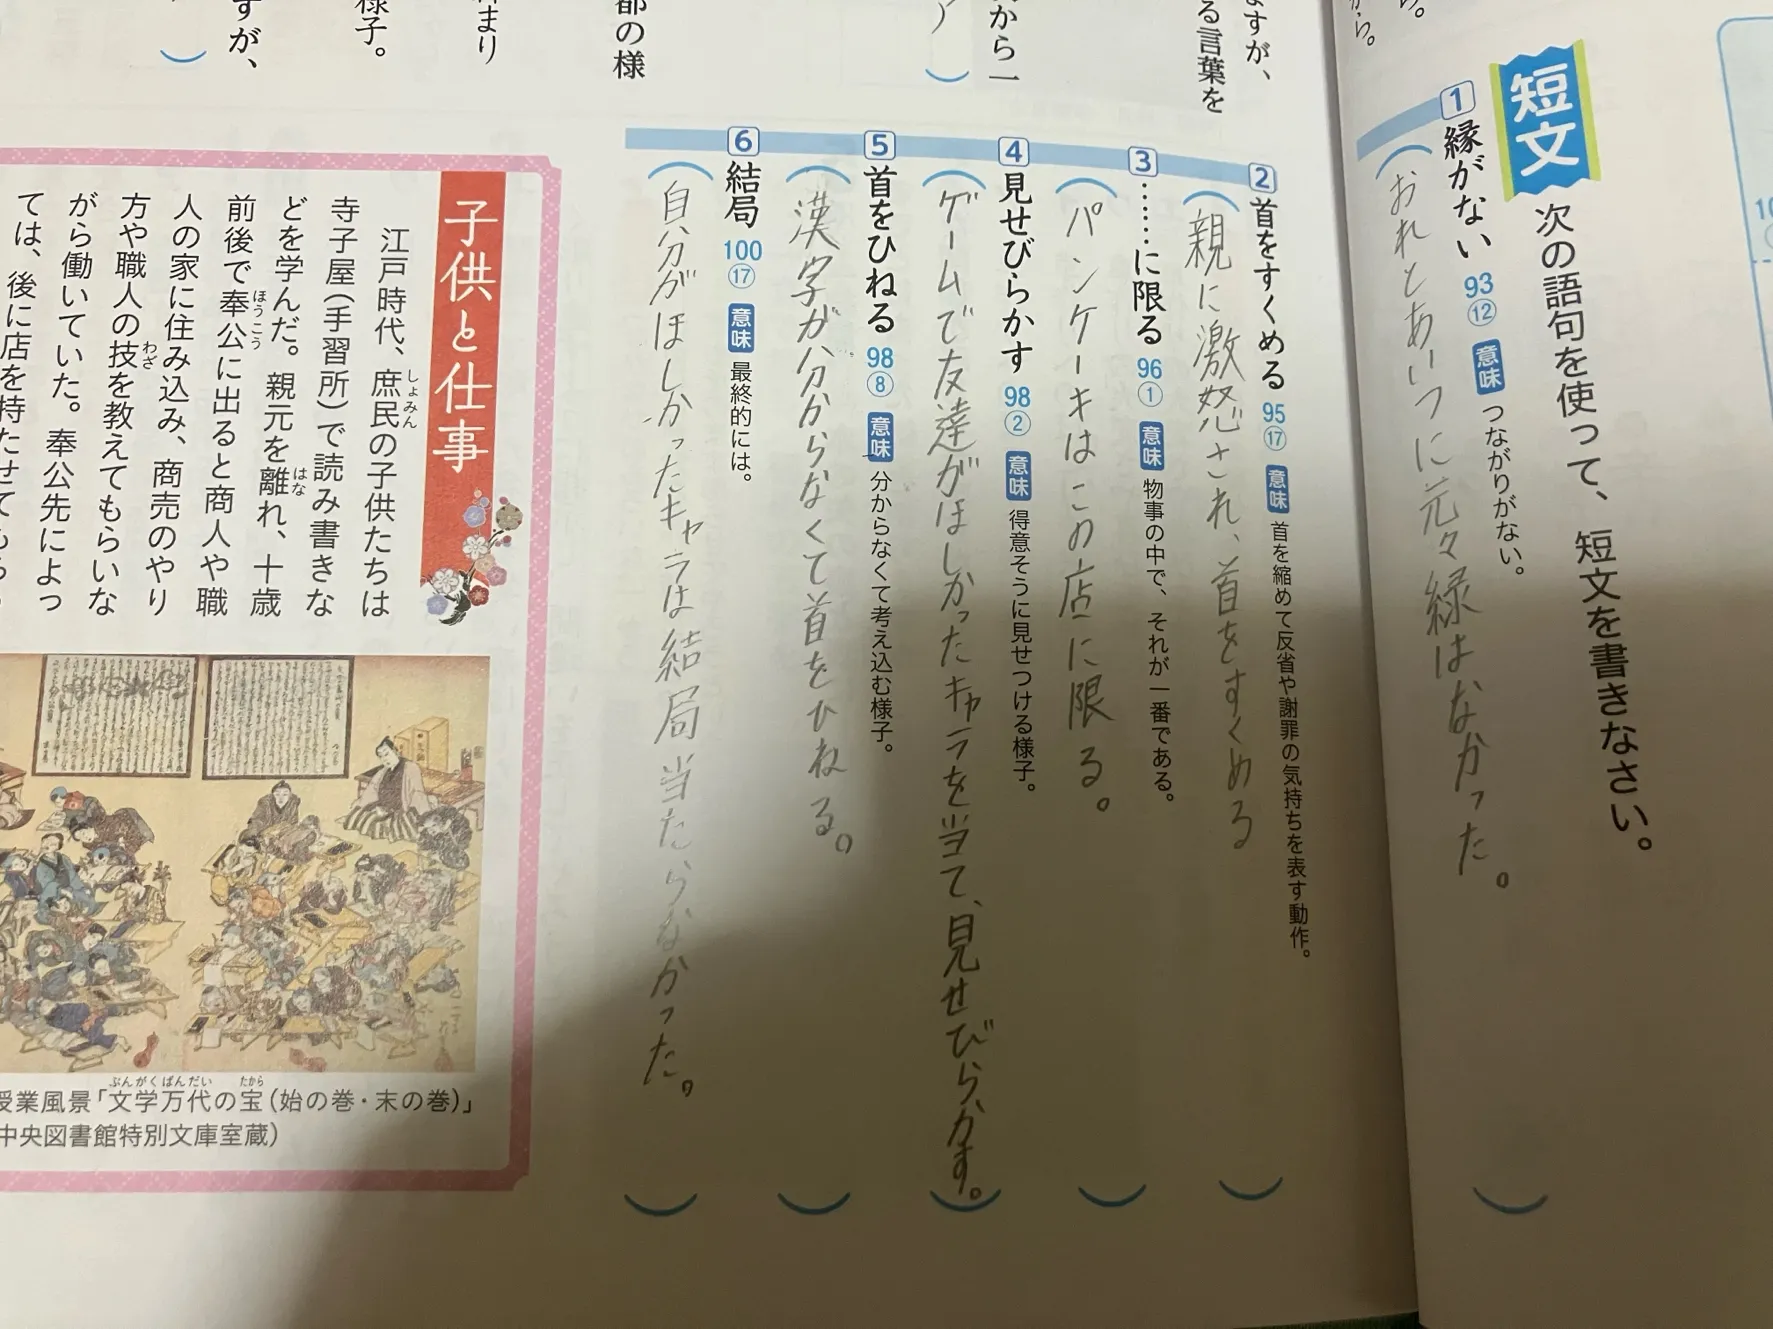 短文 次の語句を使って、短文を書きなさい。
1 縁がない 93⑫ 意味 つながりがない。
おれとあいつに元々緑はなかった。
2 首をすくめる 95⑰ 意味 首を縮めて反省や謝罪の気持ちを表す動作。
親に激怒され、首をすくめる
3 ……に限る 96① 意味 物事の中で、それが一番である。
パンケーキはこの店に限る。
4 見せびらかす 98② 意味 得意そうに見せつける様子。
ゲームで友達がほしかったキャラを当て、見せびらかす。
5 首をひねる 98⑧ 意味 分からなくて考え込む様子。
漢字が分からなくて首をひねる。
6 結局 100⑰ 意味 最終的には。
自分がほしかったキャラは結局当たらなかった。
から。
ますが、
る言葉を
から一
都の様
様子。
すが、
子供と仕事
江戸時代、庶民の子供たちは
しょみん
寺子屋(手習所)で読み書きな
どを学んだ。親元を離れ、十歳
はな
前後で奉公に出ると商人や職
ほうこう
人の家に住み込み、商売のやり
方や職人の技を教えてもらいな
わざ
がら働いていた。奉公先によっ
ては、後に店を持たせてもらっ
授業風景「文学万代の宝(始の巻・末の巻)」
ぶんがくばんだい たから
中央図書館特別文庫室蔵)